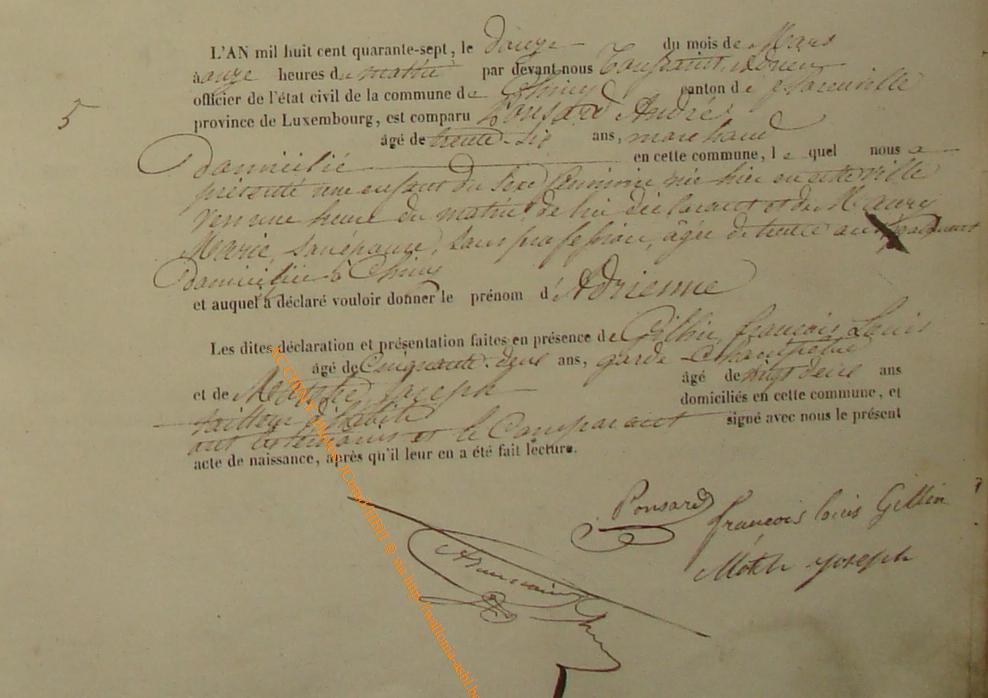 5
L'AN mil huit cent quarante-sept, le douze du mois de Mars
à onze heures du matin par devant nous Toussaint
officier de l'état civil de la commune de Chiny canton de florenville
province de Luxembourg, est comparu Ponsard André
âgé de trente-six ans, marchand
Domicilié en cette commune, le quel nous a
présenté une enfant du sexe féminin née hier en cette ville
vers une heure du matin, de lui déclarant et de Maury
Marie, son épouse, sans profession, âgée de trente ans
Domiciliée à Chiny
et auquel a déclaré vouloir donner le prénom d'Adrienne
Les dites déclaration et présentation faites en présence de Gillin, françois Louis
âgé de Cinquante-deux ans, garde Champêtre
et de Joseph âgé de vingt deux ans
tailleur d'habits domiciliés en cette commune, et
ont les témoins et le Comparant signé avec nous le présent
acte de naissance, après qu'il leur en a été fait lecture.
Ponsard
françois louis Gillin
Joseph